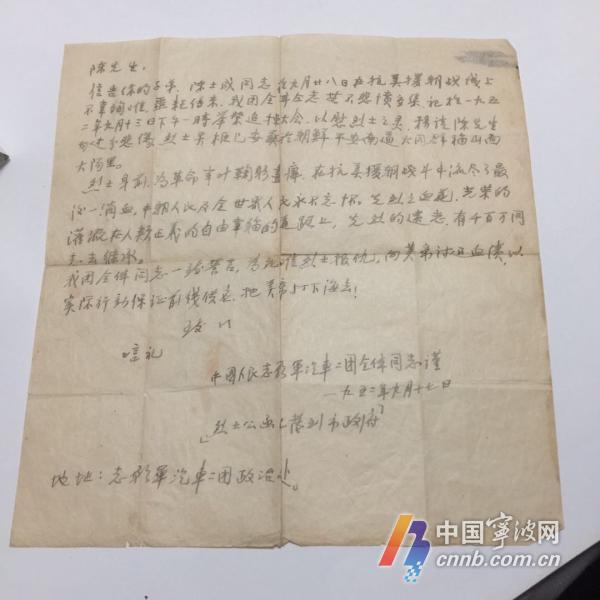 陈先生:
信告你的子弟,陈士成同志在九月廿八日在抗美援朝战线上
不幸殉难,噩耗传来,我团全体同志莫不悲愤交集,记于一九五
二年九月十三日下午一时举荣追悼大会,以慰烈士之灵,
悲伤,烈士灵柩已安葬于朝鲜平安南道大同郡
大阳里。
烈士身前,为革命事业鞠躬尽瘁,在抗美援朝战斗中流尽了最
后一滴血,中朝人民及全世界人民永久志怀。先烈之血迹,光荣的
灌溉在人类正义的自由幸福的道路上,先烈的遗志,有千百万同
志去继承。
我团全体同志一致誓言,为死难烈士报仇,向美帝讨还血债,以
实际行动保证前线供应,把美帝打下海去!
致以
敬礼
中國人民志愿軍汽車二团全体同志谨
一九五二年九月十七日
地址:志愿軍汽車二团政治处。
中国宁波网
cnnb.com.cn